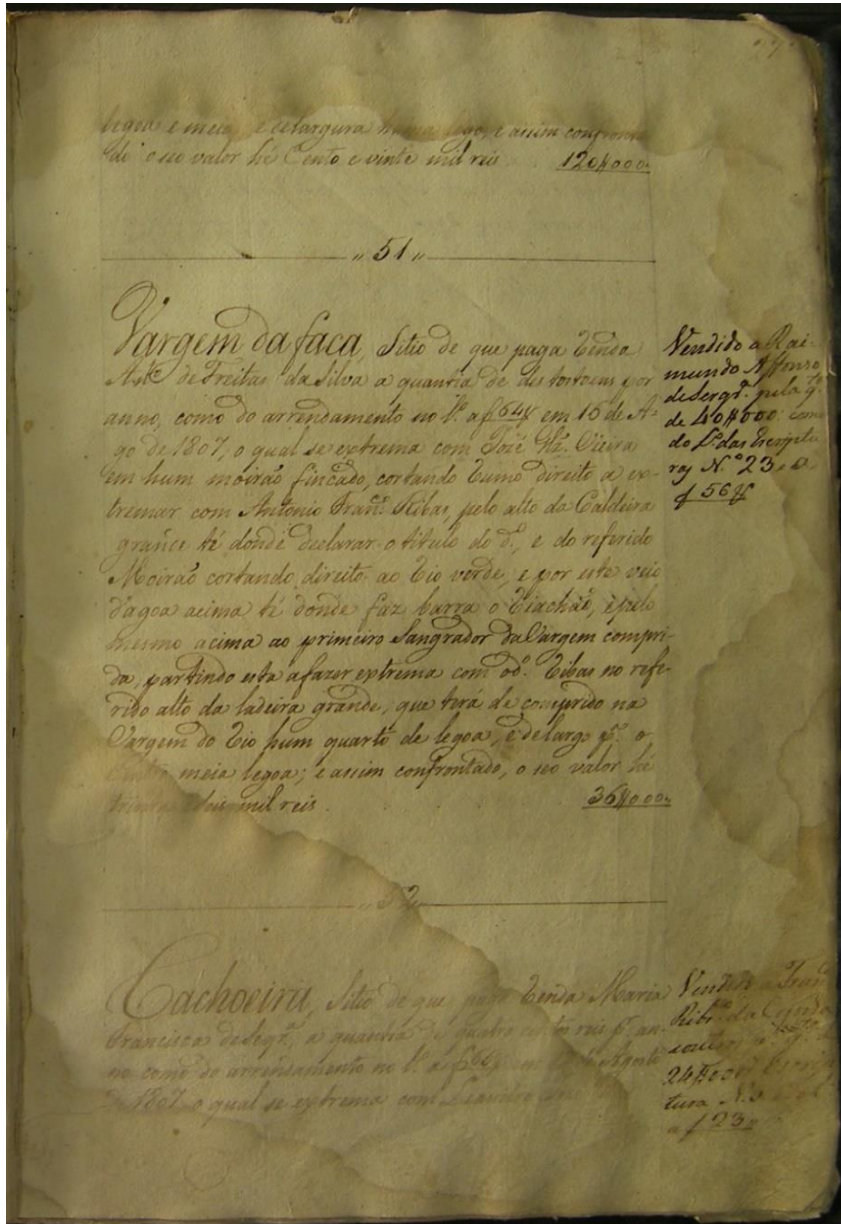 27
legoa e meia, e de largura huma lego, e assim confronta
do o seo valor hé Cento e vinte mil reis 120$000
51
Vargem da faca, Sitio de que paga Renda
Antº de Freitas da Silva a quantia de des tostoens por
anno, como do arrendamento no Lº a f 64 em 15 de A-
go de 1807, o qual se extrema com Jozé Vieira
em hum moirão fincado, cortando Rumo direito a ex-
tremar com Antonio Franº Ribas, pelo alto da Caldeira
grance té donde declarar o titulo do dº, e do referido
Moirão cortando direito ao Rio verde, e por este veio
d'agoa acima té donde faz barra o Riachão, e pelo
mesmo acima ao primeiro Sangrador da Vargem compri-
da, partindo esta a fazer extrema com o dº. Ribas no refe-
rido alto da ladeira grande, que terá de comprido na
Vargem do Rio hum quarto de legoa, e de largo pª. o
meia legoa; e assim confrontado, o seo valor hé
mil reis 36$000
Vendido a Rai-
mundo Affonso
de Serqª. pela qª.
de 40$000 como
do Lº das Escriptu
ras N.º 23 a
f 56
52
Cachoeira, Sitio de que paga Renda Maria
Francisca de Serqª, a quantia de quatro centos reis pr. an-
no como do arrendamento no Lº a f 60 em Agosto
de 1807 o qual se extrema com Leandro
Vendido a Fran
Ribrº da Cunha
24$000
tura N.
a f 23